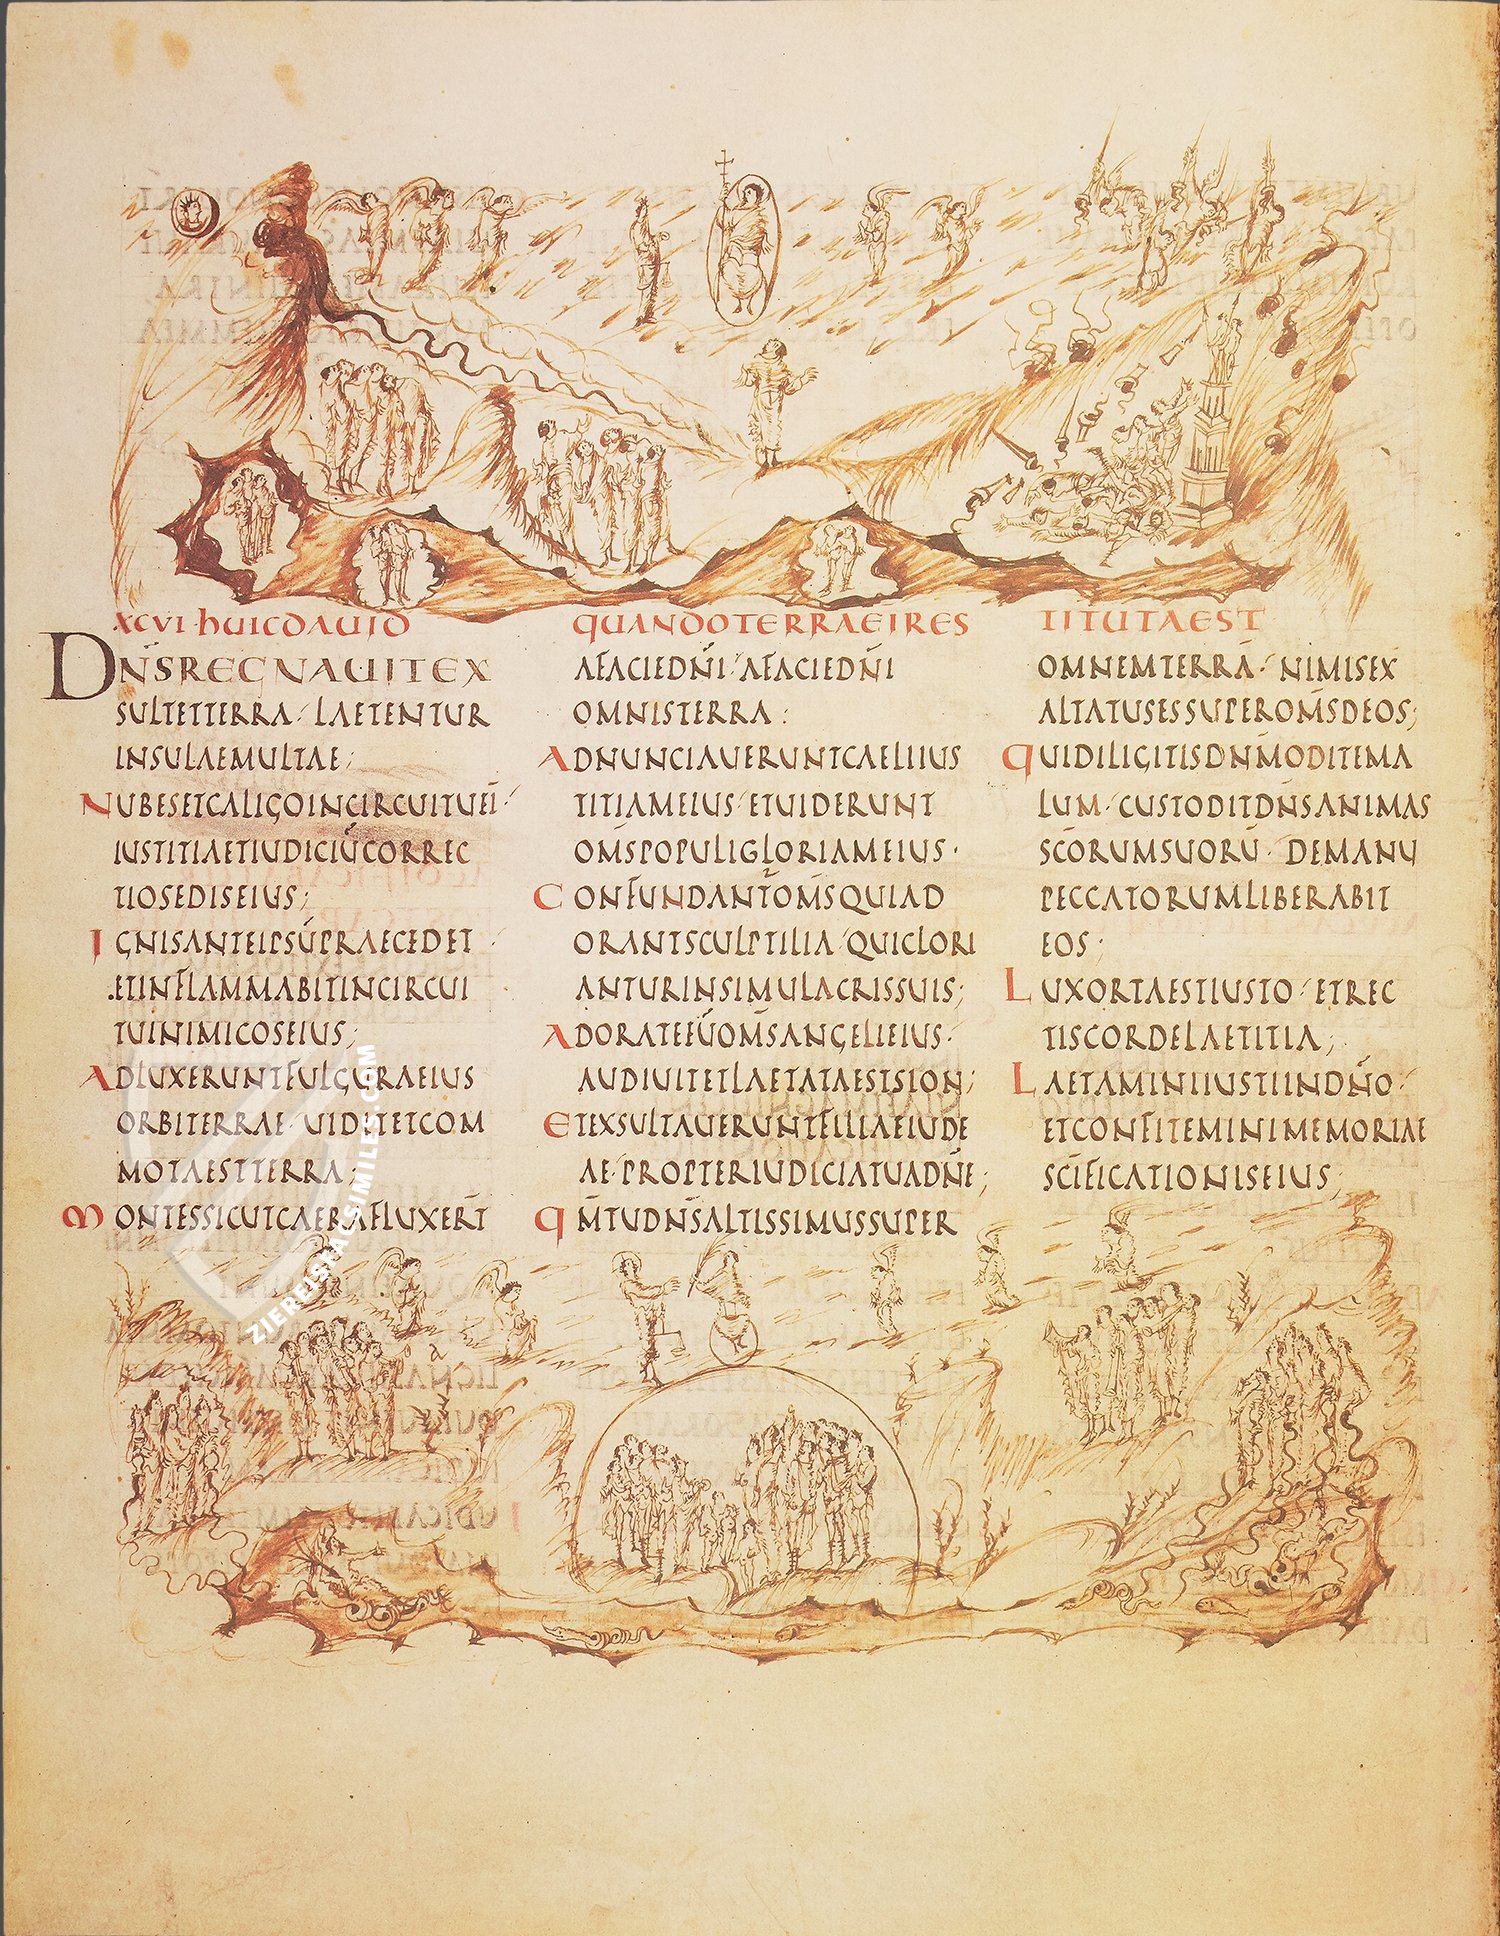 XCVI·HUICDAUID QUANDOTERRAEIRES TITUTAEST
DN̄SREGNAUITEX
SULTETTERRA· LAETENTUR
INSULAEMULTAE;
NUBESETCALIGOINCIRCUITUEI·
IUSTITIAETIUDICIŪCORREC
TIOSEDISEIUS;
IGNISANTEIPSŪPRAECEDET
ETINFLAMMABITINCIRCUI
TUINIMICOSEIUS;
ADLUXERUNTFULGURAEIUS
ORBITERRAE· UIDITETCOM
MOTAESTTERRA;
MONTESSICUTCAERAFLUXERT̄
AFACIEDN̄I· AFACIEDN̄I
OMNISTERRA:
ADNUNCIAUERUNTCAELIIUS
TITIAMEIUS· ETUIDERUNT
OM̄SPOPULIGLORIAMEIUS·
CONFUNDANT̄OM̄SQUIAD
ORANTSCULPTILIA· QUIGLORI
ANTURINSIMULACRISSUIS;
ADORATEEŪOM̄SANGELIEIUS·
AUDIUITETLAETATAESTSION;
ETEXSULTAUERUNTFILIAEIUDE
AE· PROPTERIUDICIATUADN̄E;
QM̄TUDN̄SALTISSIMUSSUPER
OMNEMTERRĀ· NIMISEX
ALTATUSESSUPEROM̄SDEOS;
QUIDILIGITISDN̄MODITEMA
LUM· CUSTODITDN̄SANIMAS
SC̄ORUMSUORŪ· DEMANU
PECCATORUMLIBERABIT
EOS;
LUXORTAESTIUSTO· ETREC
TISCORDELAETITIA;
LAETAMINIIUSTIINDN̄O·
ETCONFITEMINIMEMORIAE
SC̄IFICATIONISEIUS;
ZIEREISFACSIMILES.COM